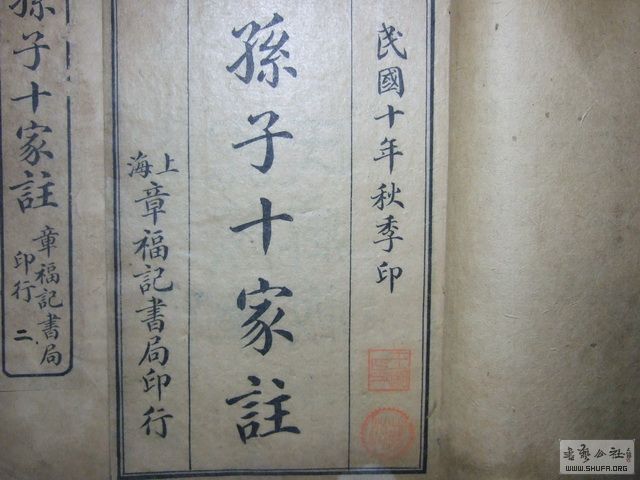 民國十年秋季印
孫子十家註
上海章福記書局印行
孫子十家註
章福記書局
印行
二
WWW.SHUFA.ORG